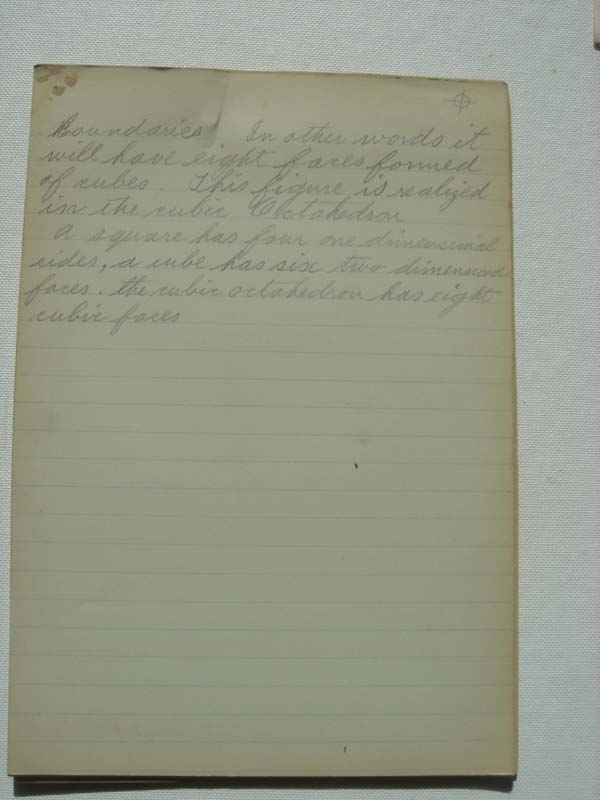 Boundaries In other words it
will have eight faces formed
of cubes. This figure is realized
in the cubic Octahedron
A square has four one dimensional
sides, a cube has six two dimensional
faces. the cubic octahedron has eight
cubic faces